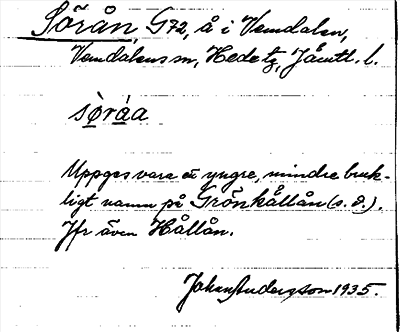 Sörån, G72, å i Vemdalen,
Vemdalens sn, Hede tg, Jämtl. l.
sòráa
Uppges vara ett yngre, mindre bruk-
ligt namn på Grönkållån (s. d.).
Jfr även Hållån.
Johan Andersson 1935.